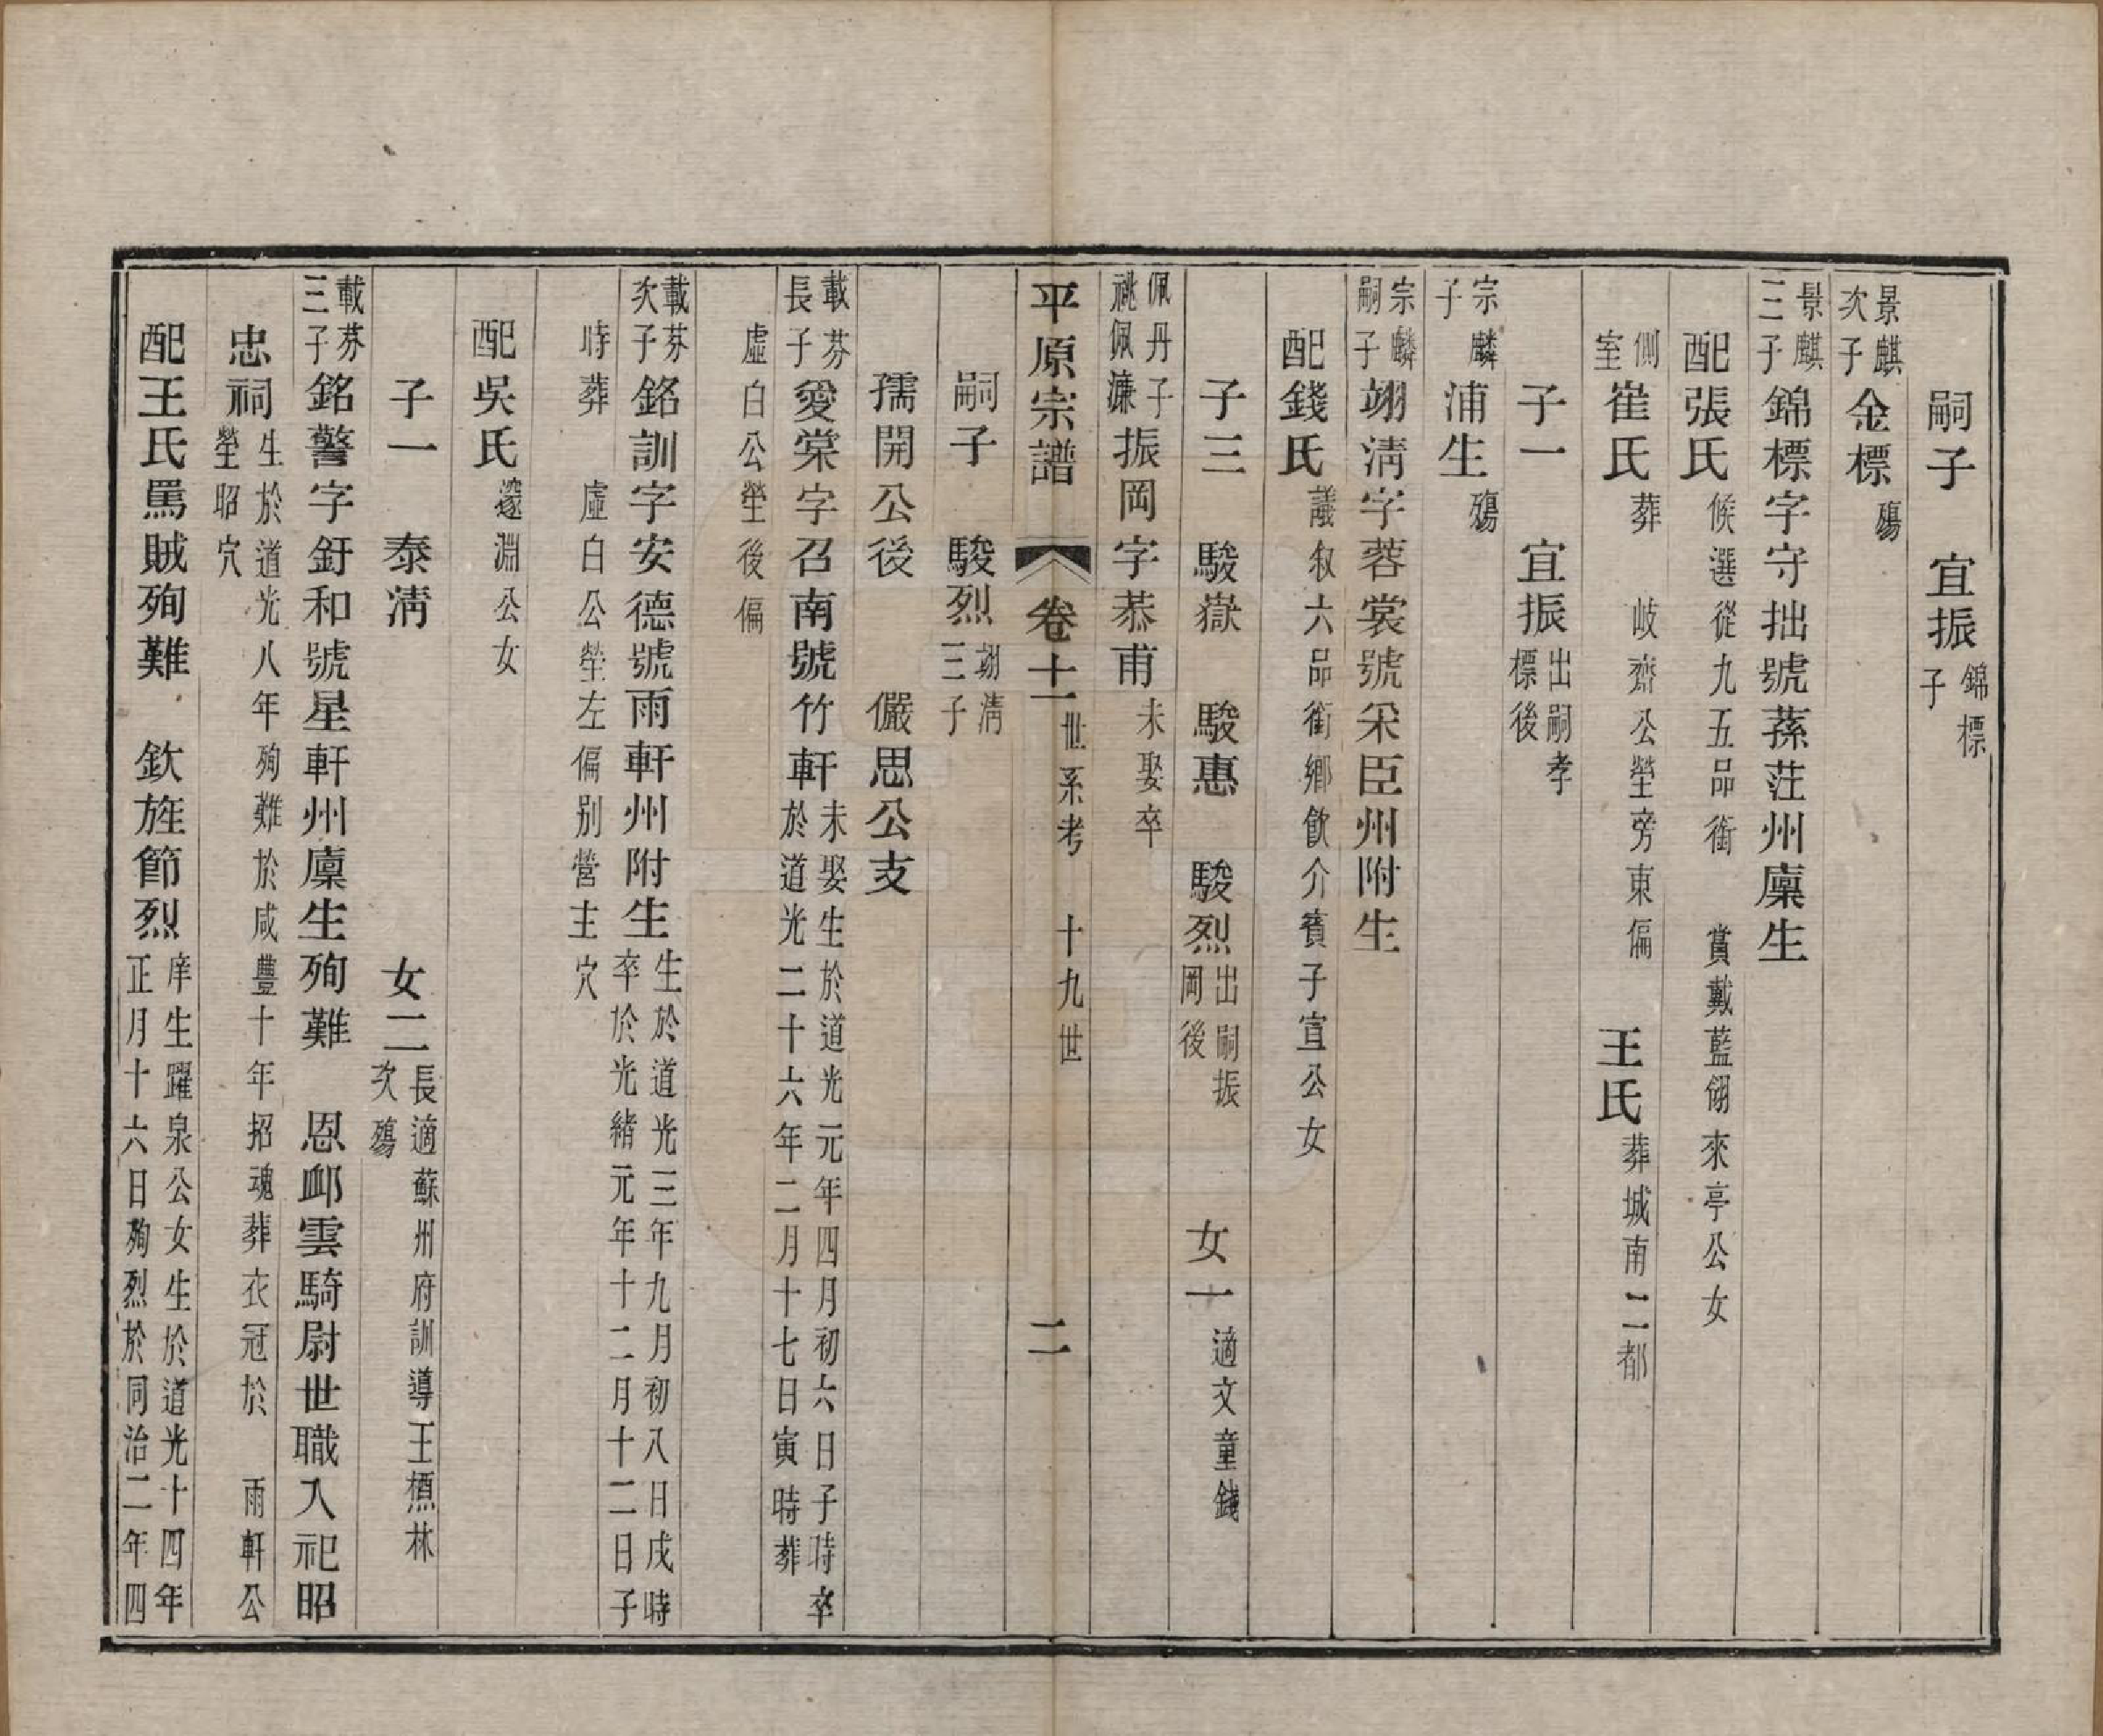 嗣子　宜振錦標子
景麒次子金標殤
景麒三子錦標字守拙號蓀荘州廩生
配張氏候選從九五品銜　賞戴藍翎來亭公女
側室崔氏葬　岐齋公塋旁東偏　王氏葬城南二都
子一　宜振出嗣孝標後
宗麟子浦生殤
宗麟嗣子翊淸字蓉裳號采臣州附生
配錢氏議叙六品銜鄉飲介賓子宣公女
子三　駿嶽　駿惠　駿烈出嗣振岡後　女一適文童錢
佩丹子祧佩濂振岡字恭甫未娶卒
平原宗譜　卷十一世系考　十九世　二
嗣子　駿烈翊淸三子
孺開公後　儼思公支
載芬長子愛棠字召南號竹軒未娶生於道光元年四月初六日子時卒於道光二十六年二月十七日寅時葬
虛白公塋後偏
載芬次子銘訓字安德號雨軒州附生生於道光三年九月初八日戌時卒於光緒元年十二月十二日子
時葬　虛白公塋左偏别營主穴
配吳氏邃淵公女
子一　泰淸　女二長適蘇州府訓導王櫄林次殤
載芬三子銘警字釪和號星軒州廩生殉難　恩卹雲騎尉世職入祀昭
忠祠生於道光八年殉難於咸豐十年招魂葬衣冠於　雨軒公塋昭穴
配王氏罵賊殉難　欽旌節烈庠生躍泉公女生於道光十四年正月十六日殉烈於同治二年四